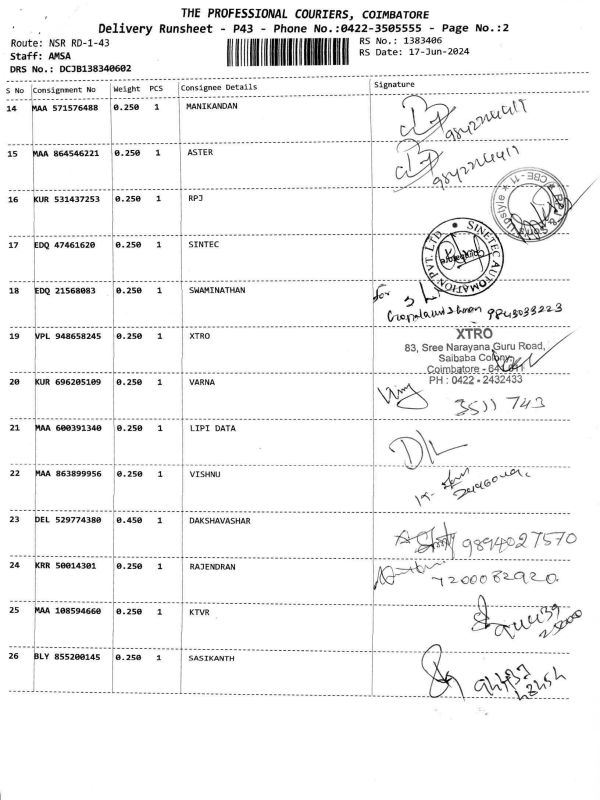 THE PROFESSIONAL COURIERS, COIMBATORE
Delivery Runsheet - P43 - Phone No.:0422-3505555 - Page No.:2
Route: NSR RD-1-43
RS No.: 1383406
Staff: AMSA
RS Date: 17-Jun-2024
DRS No.: DCJB138340602
S No Consignment No Weight PCS Consignee Details Signature
14 MAA 571576488 0.250 1 MANIKANDAN
15 MAA 864546221 0.250 1 ASTER
16 KUR 531437253 0.250 1 RPJ
17 EDQ 47461620 0.250 1 SINTEC
SINETEC AUTOMATION PVT. LTD.
18 EDQ 21568083 0.250 1 SWAMINATHAN
for
9843033223
19 VPL 948658245 0.250 1 XTRO
XTRO
83, Sree Narayana Guru Road,
Saibaba Colony,
Coimbatore - 641 011
PH : 0422 - 2432433
20 KUR 696205109 0.250 1 VARNA
3511 743
21 MAA 600391340 0.250 1 LIPI DATA
22 MAA 863899956 0.250 1 VISHNU
23 DEL 529774380 0.450 1 DAKSHAVASHAR
9894027570
24 KRR 50014301 0.250 1 RAJENDRAN
7200062920
25 MAA 108594660 0.250 1 KTVR
26 BLY 855200145 0.250 1 SASIKANTH